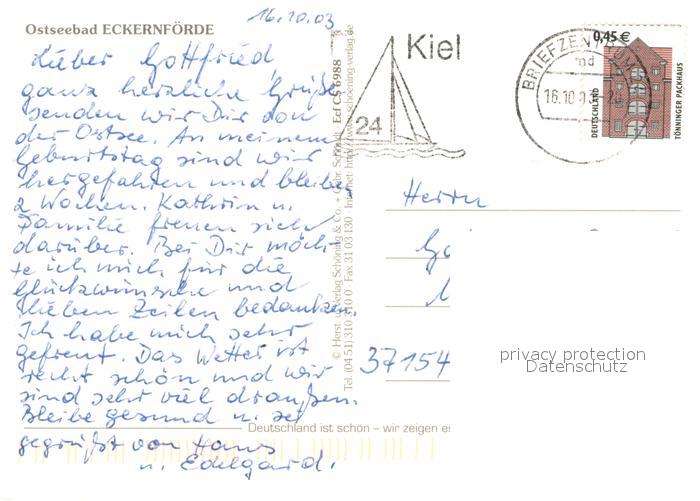 16.10.03
Ostseebad ECKERNFÖRDE
Lieber Gottfried,
ganz herzliche Grüße
senden wir Dir von
der Ostsee. An meinem
Geburtstag sind wir
hergefahren und bleiben
2 Wochen. Kathrin u.
Familie freuen sich
darüber. Bei Dir möch-
te ich mich für die
Glückwünsche und
lieben Zeilen bedanken.
Ich habe mich sehr
gefreut. Das Wetter ist
recht schön und wir
sind sehr viel draußen.
Bleibe gesund u. sei
gegrüßt von Hans
u. Edelgard.
Schöning & Co. + Gebr. Schmidt
Tel. (04 51) 310 31 0 Fax 31 03 130
Eck CS 6988
Kiel
24
BRIEFZENTRUM
16.10.03
0,45 €
DEUTSCHLAND
TÖNNINGER PACKHAUS
Herrn
37154
privacy protection
Datenschutz
Deutschland ist schön – wir zeigen es